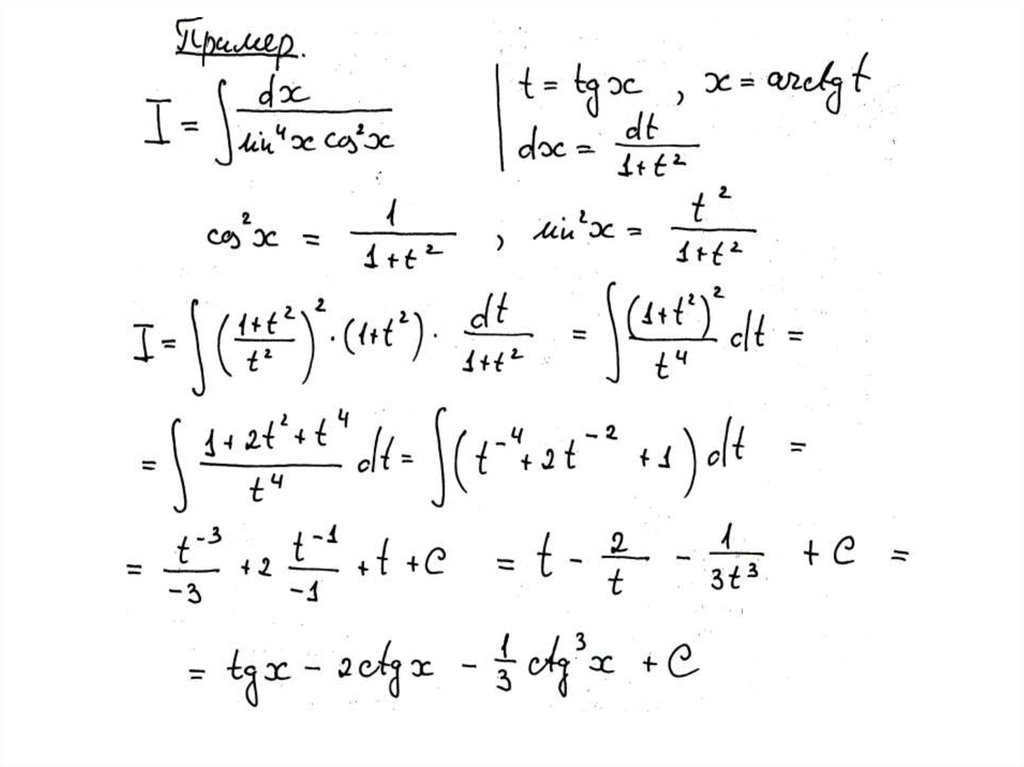 Пример.
I = ∫ dx / (sin⁴x cos²x) | t = tg x , x = arctg t
| dx = dt / (1+t²)
cos²x = 1 / (1+t²) , sin²x = t² / (1+t²)
I = ∫ ((1+t²) / t²)² · (1+t²) · dt / (1+t²) = ∫ (1+t²)² / t⁴ dt =
= ∫ (1+2t²+t⁴) / t⁴ dt = ∫ (t⁻⁴ + 2t⁻² + 1) dt =
= t⁻³ / -3 + 2 t⁻¹ / -1 + t + C = t - 2/t - 1 / 3t³ + C =
= tg x - 2ctg x - 1/3 ctg³x + C